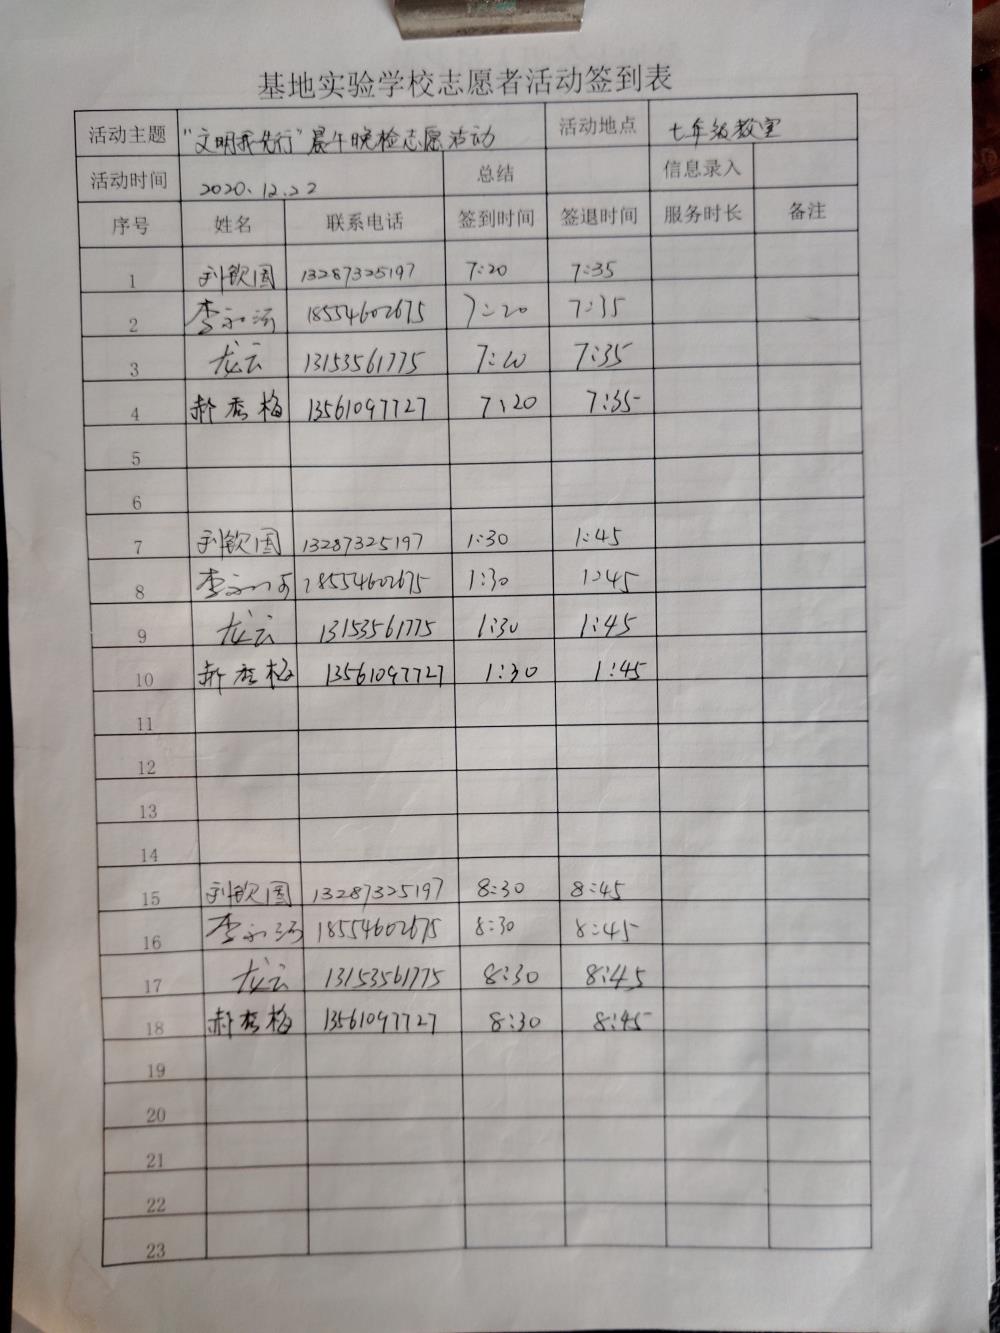 基地实验学校志愿者活动签到表
活动主题 "文明我先行"晨午晚检志愿活动 活动地点 七年级教室
活动时间 2020.12.22 总结 信息录入
序号 姓名 联系电话 签到时间 签退时间 服务时长 备注
1 刘钦国 13287325197 7:20 7:35
2 李永河 18554602675 7:20 7:35
3 龙云 13153561775 7:20 7:35
4 郝秀梅 13561097727 7:20 7:35
5
6
7 刘钦国 13287325197 1:30 1:45
8 李永河 18554602675 1:30 1:45
9 龙云 13153561775 1:30 1:45
10 郝秀梅 13561097727 1:30 1:45
11
12
13
14
15 刘钦国 13287325197 8:30 8:45
16 李永河 18554602675 8:30 8:45
17 龙云 13153561775 8:30 8:45
18 郝秀梅 13561097727 8:30 8:45
19
20
21
22
23